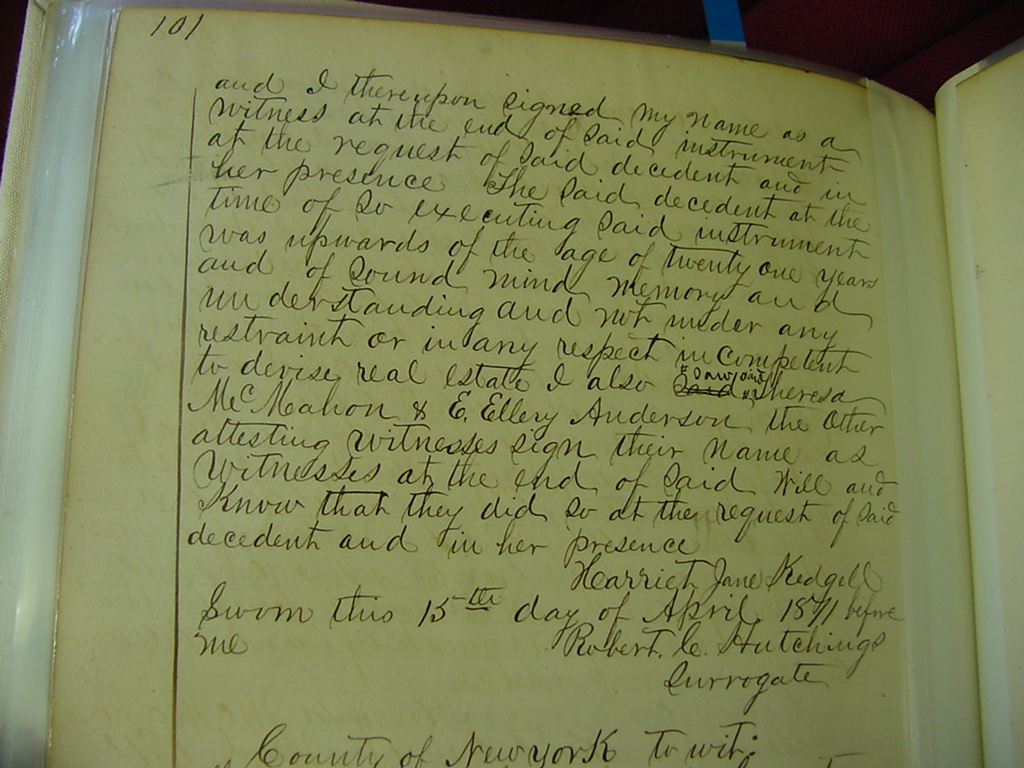 101
and I thereupon signed my name as a
witness at the end of said instrument
at the request of said decedent and in
her presence The said decedent at the
time of so executing said instrument
was upwards of the age of twenty one years
and of sound mind memory and
understanding and not under any
restraint or in any respect incompetent
to devise real estate I also saw Theresa
McMahon & E. Ellery Anderson the other
attesting witnesses sign their name as
Witnesses at the end of said will and
Know that they did so at the request of said
decedent and in her presence
Harriet Jane Kidgill
Sworn this 15th day of April 1871 before
me Robert C Hutchings
Surrogate
County of New York To wit;